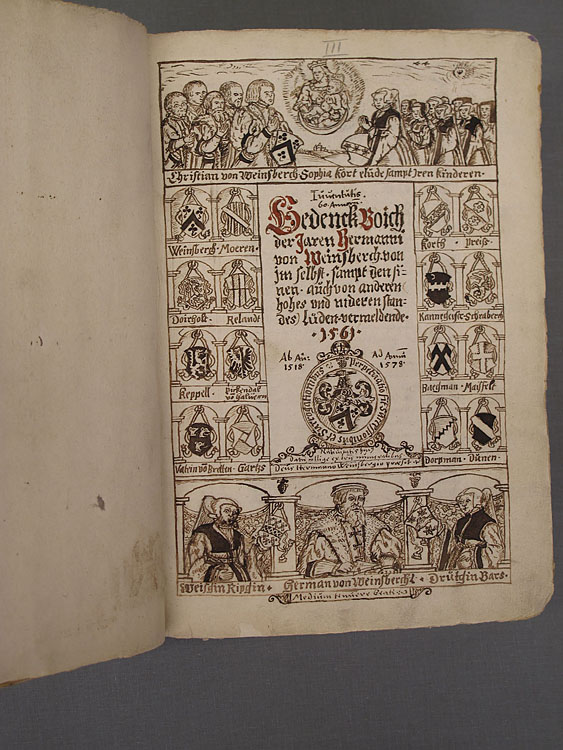 III
Christian von Weinsberch Sophia Kort elude sampt Iren kinderen
Iuventutis
60. Annorum
Gedenck Boich
der Jaren Hermanni
von Weinsberch von
im selbst sampt den si-
nen auch von anderen
hohes und nideren stan-
des luden vermeldende
1561
Ab Año
1518
Ad Annũ
1578
Weinsberch Moeren
Korth Preiß
Doirholt Relandt
Kannegeisser
Keppell
Bachman Maiselt
Gartzs
Dorpman Dienen
Deus Hermanno Weinsbergio
Weisgin Ripgin Herman von Weinsberch Drutgin Bars
Medium tenuere beati